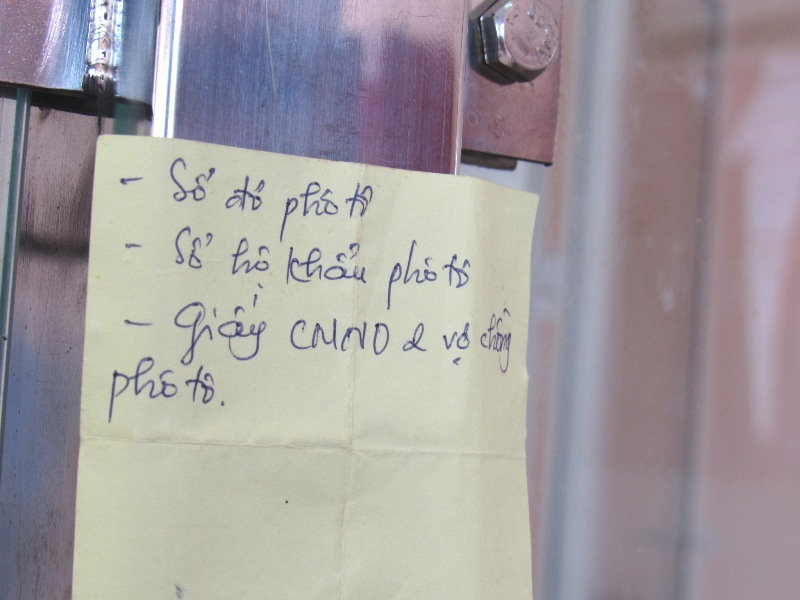 - Sổ đỏ phô tô
- Sổ hộ khẩu phô tô
- Giấy CMND 2 vợ chồng
phô tô.